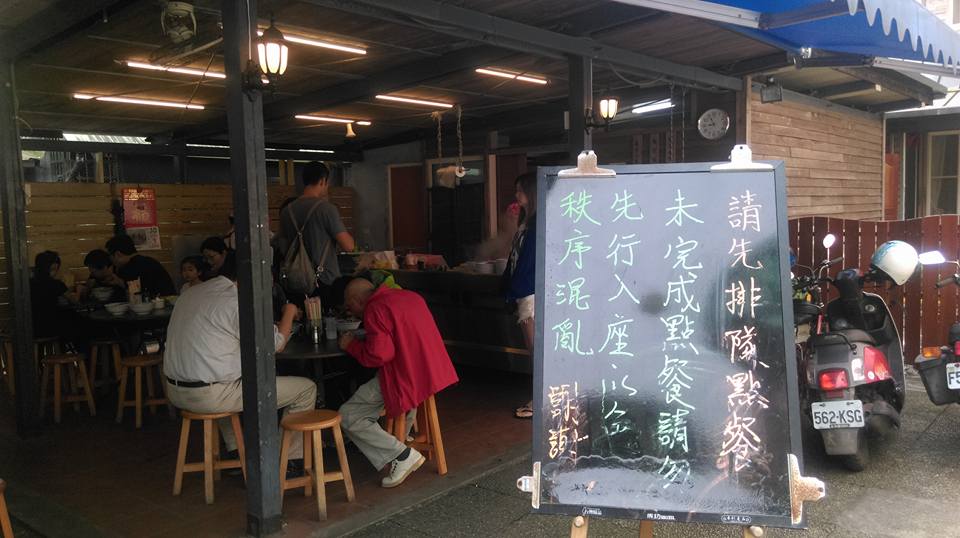 請先排隊點餐
未完成點餐請勿
先行入座以免
秩序混亂
謝謝
562-KSG